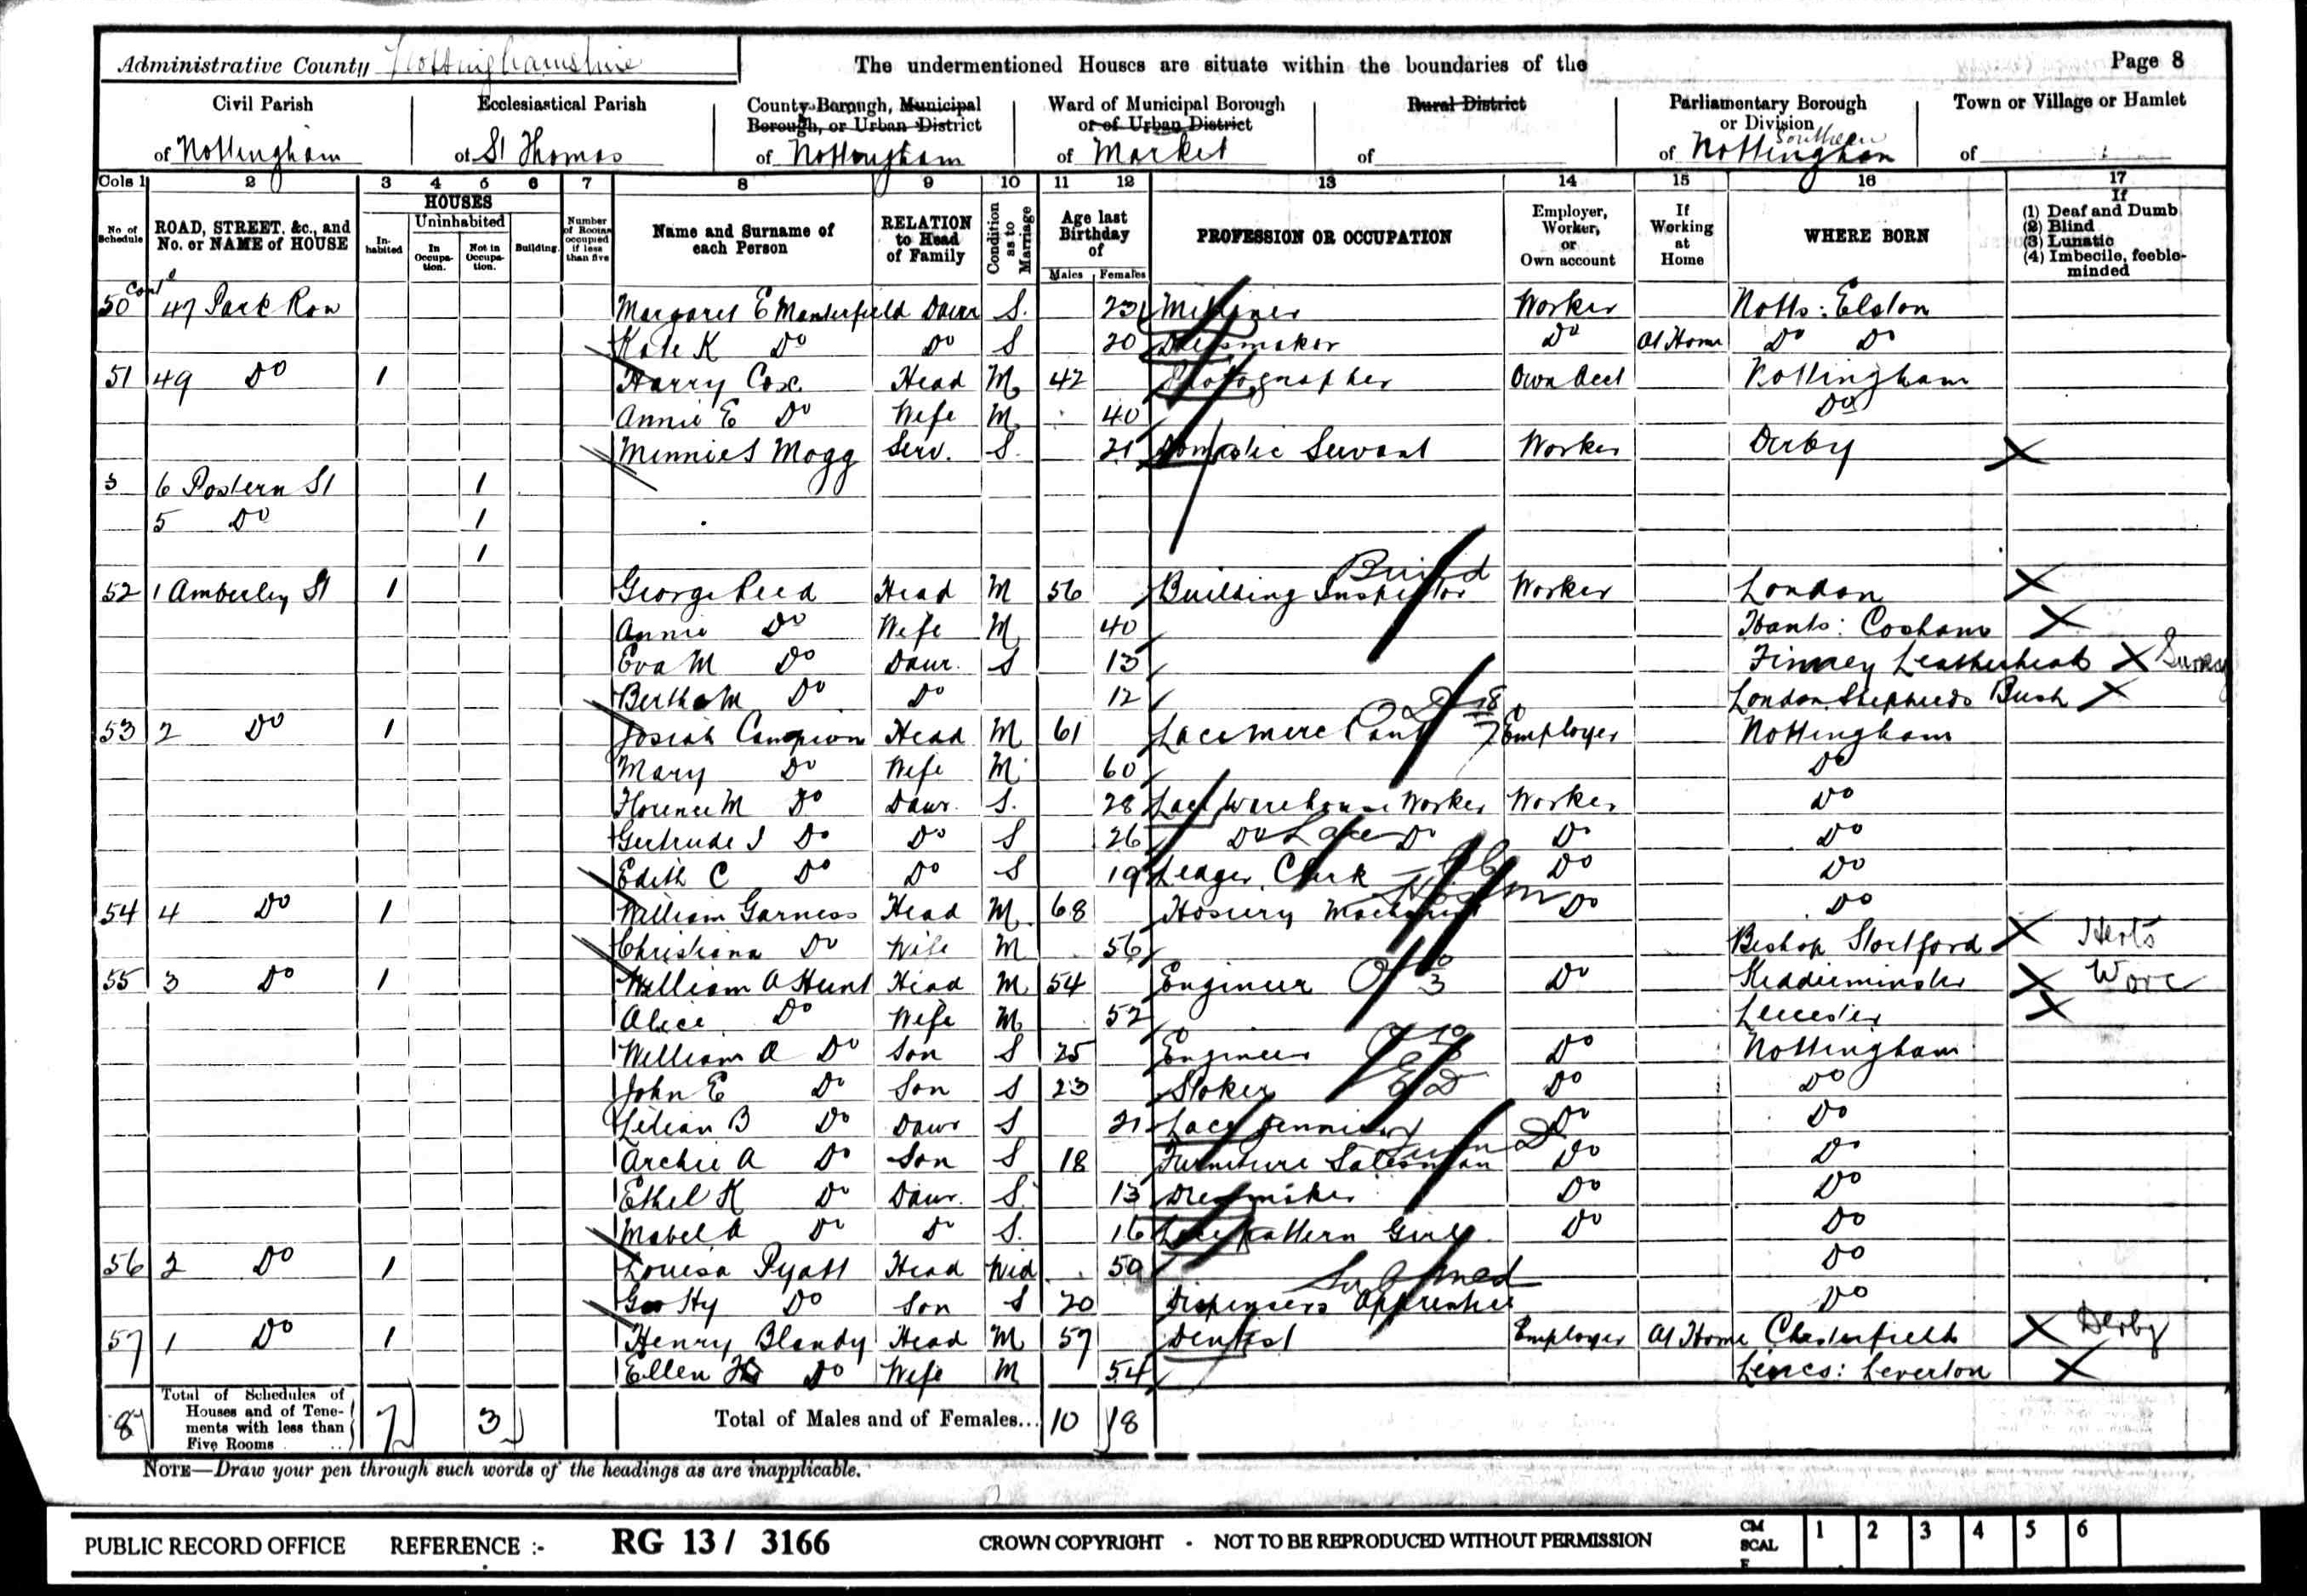 Administrative County Nottinghamshire The undermentioned Houses are situate within the boundaries of the Page 8
Civil Parish Ecclesiastical Parish County Borough, Municipal Borough, or Urban District Ward of Municipal Borough or of Urban District Rural District Parliamentary Borough or Division Town or Village or Hamlet
of Nottingham of St Thomas of Nottingham of Market of of Nottingham Southern of
Cols 1 2 3 4 5 6 7 8 9 10 11 12 13 14 15 16 17
No of Schedule ROAD, STREET, &c., and No. or NAME of HOUSE HOUSES Inhabited Uninhabited In Occupation. Not in Occupation. Building Number of Rooms occupied if less than five Name and Surname of each Person RELATION to Head of Family Condition as to Marriage Age last Birthday of Males Females PROFESSION OR OCCUPATION Employer, Worker, or Own account If Working at Home WHERE BORN If (1) Deaf and Dumb (2) Blind (3) Lunatic (4) Imbecile, feeble-minded
50 Contd 47 Park Row Margaret E Manterfield Daur S. 23 Milliner Worker Notts: Elston
Kate K Do Do S 20 Dressmaker Do At Home Do Do
51 49 Do 1 Harry Cox Head M 42 Photographer Own Acct Nottingham
Annie E Do Wife M 40 Do
Minnie S Mogg Serv. S. 21 Domestic Servant Worker Derby X
3 6 Postern St 1
5 Do 1
1
52 1 Amberley St 1 George Reed Head M 56 Building Inspector Build Worker London X
Annie Do Wife M 40 Hants: Cosham X
Eva M Do Daur. S 13 Leatherhead X Surrey
Bertha M Do Do 12 London Shepherds Bush X
53 2 Do 1 Josiah Campion Head M 61 Lace Employer Nottingham
Mary Do Wife M 60 Do
Florence M Do Daur. S. 28 Lace Warehouse Worker Worker Do
Gertrude J Do Do S 26 Do Lace Do Do Do
Edith C Do Do S 19 Ledger Clerk Do Do
54 4 Do 1 William Garness Head M 68 Hosiery Do Do
Christiana Do Wife M 56 Bishop Stortford X Herts
55 3 Do 1 William A Hunt Head M 54 Engineer Do Kidderminster X Worc
Alice Do Wife M 52 Leicester X
William A Do Son S 25 Engineer Do Nottingham
John E Do Son S 23 Stoker Do Do
Lilian B Do Daur S 21 Lace Do Do
Archie A Do Son S 18 Furniture Salesman Do Do
Ethel K Do Daur. S. 13 Dressmaker Do Do
Mabel A Do Do S. 16 Lace pattern Girl Do Do
56 2 Do 1 Louisa Pyatt Head Wid 50 Do
Geo Hy Do Son S 20 Dispensers Apprentice Do
57 1 Do 1 Henry Blandy Head M 57 Dentist Employer At Home Chesterfield X Derby
Ellen Do Wife M 54 Lincs: Leverton X
8 Total of Schedules of Houses and of Tenements with less than Five Rooms 7 3 Total of Males and of Females... 10 18
NOTE—Draw your pen through such words of the headings as are inapplicable.
PUBLIC RECORD OFFICE REFERENCE :- RG 13 / 3166 CROWN COPYRIGHT - NOT TO BE REPRODUCED WITHOUT PERMISSION CM SCALE 1 2 3 4 5 6